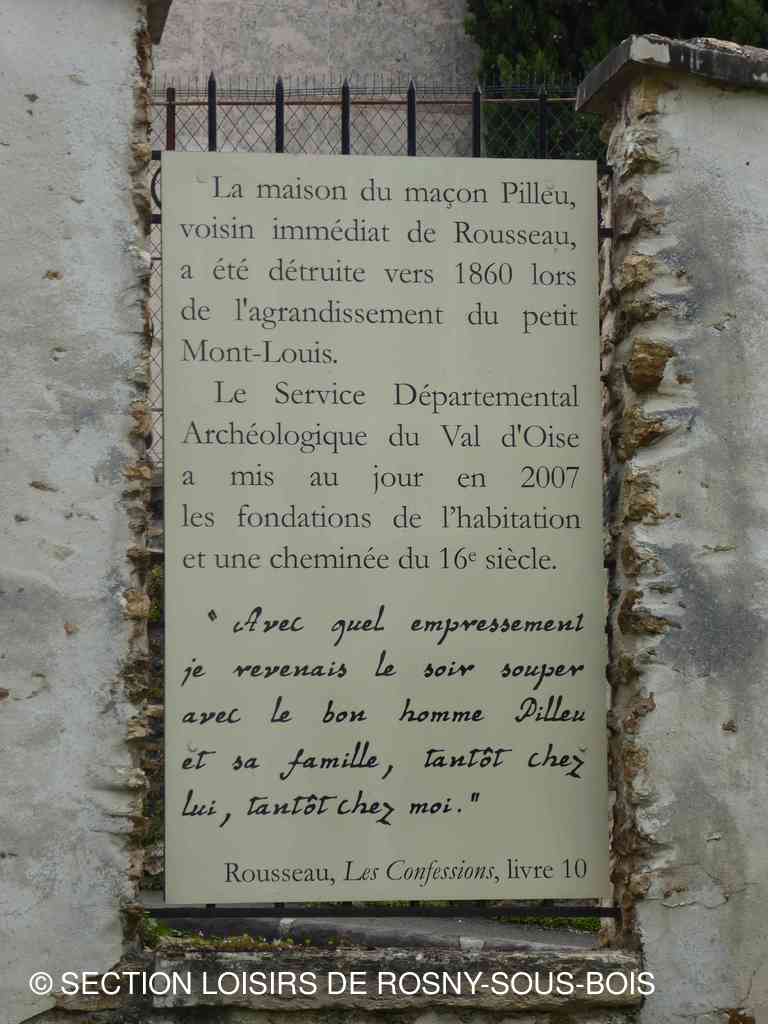 La maison du maçon Pilleu,
voisin immédiat de Rousseau,
a été détruite vers 1860 lors
de l'agrandissement du petit
Mont-Louis.
Le Service Départemental
Archéologique du Val d'Oise
a mis au jour en 2007
les fondations de l’habitation
et une cheminée du 16e siècle.
" Avec quel empressement
je revenais le soir souper
avec le bon homme Pilleu
et sa famille, tantôt chez
lui, tantôt chez moi."
Rousseau, Les Confessions, livre 10
© SECTION LOISIRS DE ROSNY-SOUS-BOIS